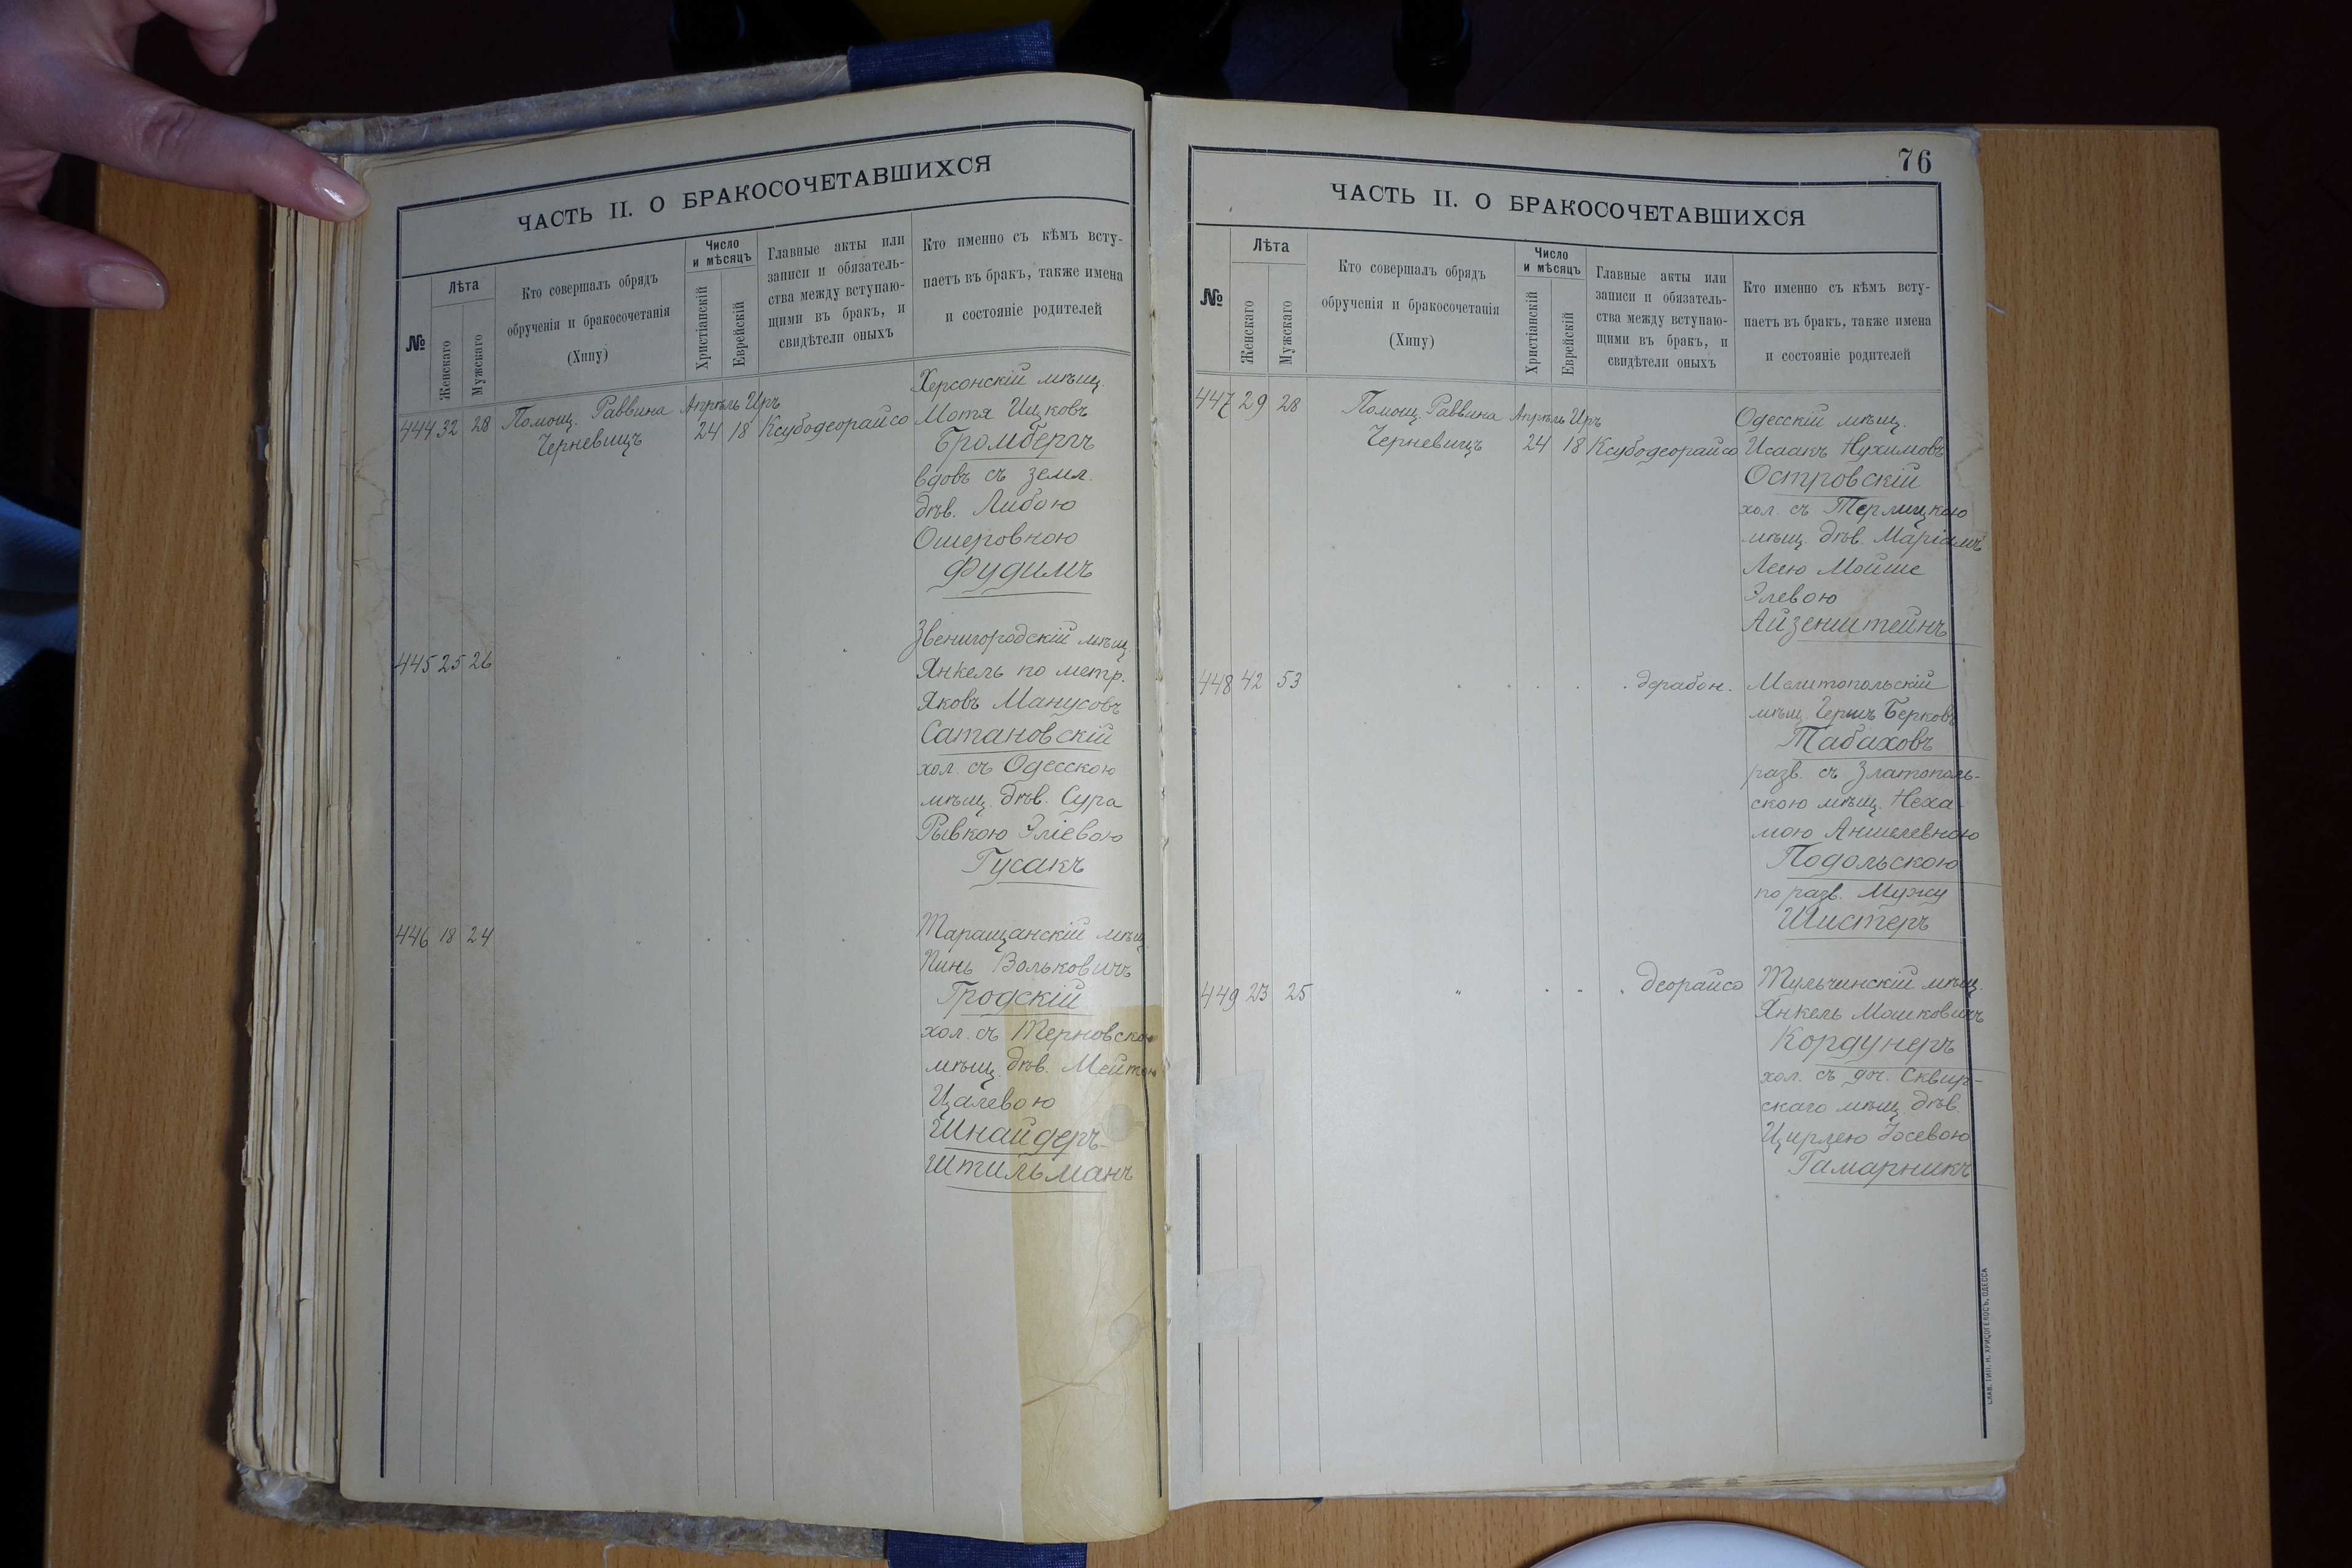 ЧАСТЬ II. О БРАКОСОЧЕТАВШИХСЯ
№
Лѣта
Женскаго
Мужскаго
Кто совершалъ обрядъ
обрученія и бракосочетанія
(Хипу)
Число
и мѣсяцъ
Христіанскій
Еврейскій
Главные акты или
записи и обязатель-
ства между вступаю-
щими въ бракъ, и
свидѣтели оныхъ
Кто именно съ кѣмъ всту-
паетъ въ бракъ, также имена
и состояніе родителей
444 32 28 Помощ. Раввина Апрѣль Иръ
Черневицъ 24 18 Ксубодеорайсо
Херсонскій мѣщ.
Мотя Ицковъ
Бромбергъ
вдовъ съ земл.
дѣв. Либою
Ошеровною
Фудимъ
445 25 26
Звенигородскій мѣщ.
Янкель по метр.
Яковъ Манусовъ
Сатановскій
хол. съ Одесскою
мѣщ. дѣв. Сура
Рывкою Эліевою
Гусакъ
446 18 24
Таращанскій мѣщ.
Пинь Вольковичъ
Гродскій
хол. съ Терновскою
мѣщ. дѣв. Мейтою
Цалевою
Шнайдеръ-
Штильманъ
76
ЧАСТЬ II. О БРАКОСОЧЕТАВШИХСЯ
№
Лѣта
Женскаго
Мужскаго
Кто совершалъ обрядъ
обрученія и бракосочетанія
(Хипу)
Число
и мѣсяцъ
Христіанскій
Еврейскій
Главные акты или
записи и обязатель-
ства между вступаю-
щими въ бракъ, и
свидѣтели оныхъ
Кто именно съ кѣмъ всту-
паетъ въ бракъ, также имена
и состояніе родителей
447 29 28 Помощ. Раввина Апрѣль Иръ
Черневицъ 24 18 Ксубодеорайсо
Одесскій мѣщ.
Исаакъ Нухимовъ
Островскій
хол. съ Терлицкою
мѣщ. дѣв. Маріамъ
Леею Мойше
Элевою
Айзенштейнъ
448 42 53 дерабон.
Мелитопольскій
мѣщ. Гершъ Берковъ
Табаховъ
разв. съ Златополь-
скою мѣщ. Неха-
мою Аншелевною
Подольскою
по разв. мужу
Шистеръ
449 23 25 деорайсо
Тульчинскій мѣщ.
Янкель Мошковичъ
Кордунеръ
хол. съ доч. Сквир-
скаго мѣщ. дѣв.
Цирлею Іосевою
Гамарникъ
СКЛ. ТИП. М. ХРИСОГЕЛОСЪ, ОДЕССА